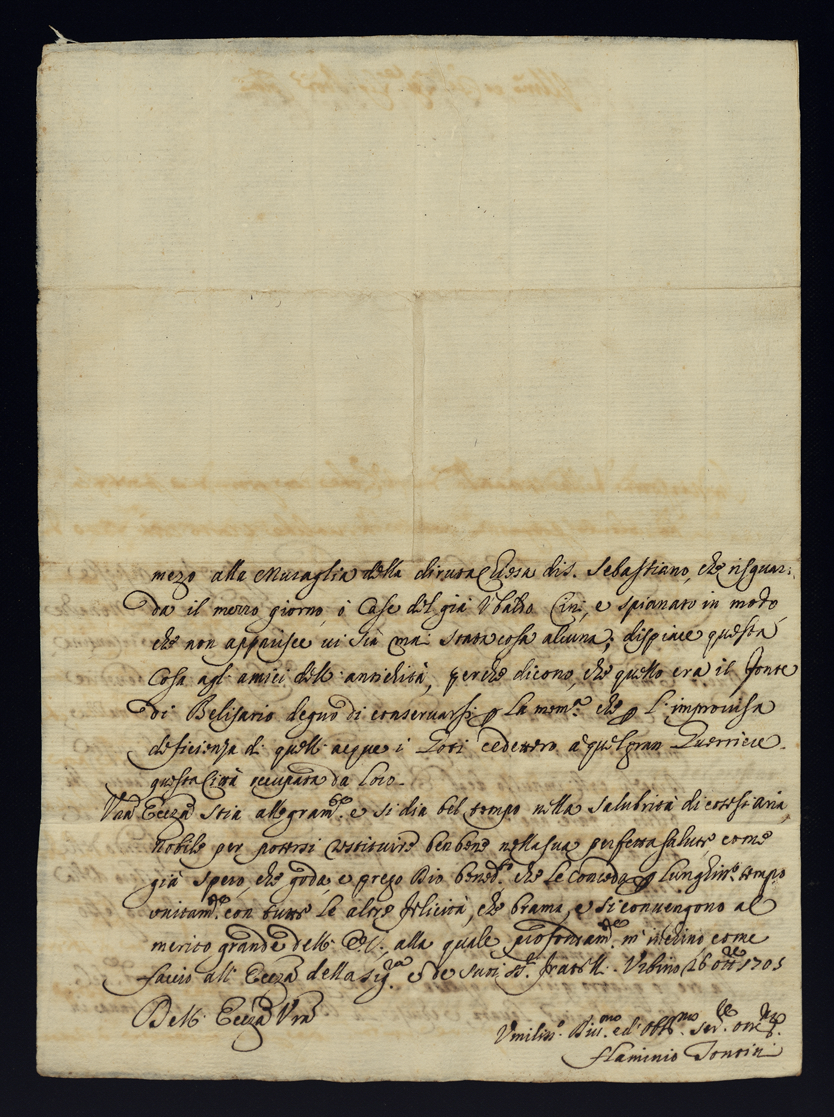 mezo alla Muraglia della diruta Chiesa di S. Sebastiano, che risguar:
da il mezzo giorno, ò Case del già Ubaldo Cini, e spianato in modo,
che non apparisce vi sia mai stata cosa alcuna; dispiace questa
Cosa agl' amici dell' antichità, perche dicono, che quello era il fonte
di Belisario degno di conservarsi p La mem.ª che p L' improvisa
deficienza di quell' acque i Goti cedettero à quel gran Guerriere
questa Città occupata da Loro.
Vrã Ecczã stia allegram.te e si dia bel tempo nella salubrità di cotest' aria
nobile per potersi restituire ben bene nella sua perfetta salute come
già spero, che goda, e prego Dio bened.º che Le Conceda p Lunghiss.º tempo
unitam.te con tutte Le altre felicità, che brama, e si convengono al
merito grande dell' E. V., alla quale profondam.te m' inchino come
faccio all' Ecczã della Sig.ra e de suoi SS.ri fratelli. Urbino 26 ott.re 1705
Dell' Ecczã Vrã
Umiliss.º Div.mo ed Obb.mo Ser.re
Flaminio